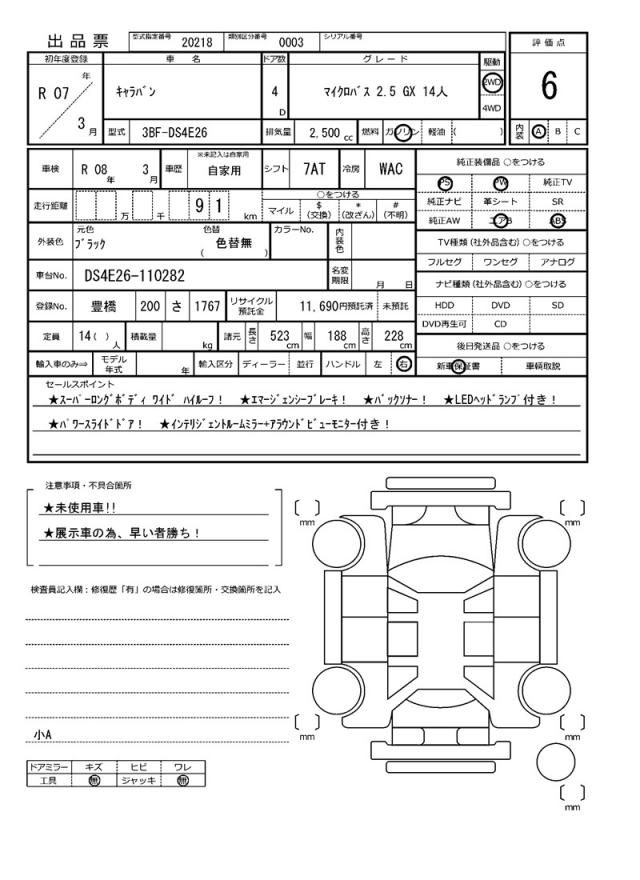 出品票 型式指定番号 20218 類別区分番号 0003 シリアル番号
評価点
6
内装 A B C
初年度登録 車名 ドア数 グレード 駆動
R 07 年 3 月 キャラバン 4 D マイクロバス 2.5 GX 14人 2WD 4WD
型式 3BF-DS4E26 排気量 2,500 cc 燃料 ガソリン 軽油 ( )
車検 R 08 年 3 月 車歴 ※未記入は自家用 自家用 シフト 7AT 冷房 WAC
走行距離 万 千 9 1 km ○をつける
マイル $ (交換) * (改ざん) # (不明)
外装色 元色 ブラック 色替 色替無 ( ) カラーNo. 内装色
車台No. DS4E26-110282 名変期限 月 日
登録No. 豊橋 200 さ 1767 リサイクル預託金 11,690円預託済 未預託
定員 14( ) 人 積載量 kg 諸元 長さ 523 cm 幅 188 cm 高さ 228 cm
輸入車のみ⇒ モデル年式 年 輸入区分 ディーラー 並行 ハンドル 左 右
純正装備品 ○をつける
PS PW 純正TV
純正ナビ 革シート SR
純正AW エアB ABS
TV種類(社外品含む) ○をつける
フルセグ ワンセグ アナログ
ナビ種類(社外品含む) ○をつける
HDD DVD SD
DVD再生可 CD
後日発送品 ○をつける
新車保証書 車輌取説
セールスポイント
★スーパーロングボディ ワイド ハイルーフ! ★エマージェンシーブレーキ! ★バックソナー! ★LEDヘッドランプ付き!
★パワースライドドア! ★インテリジェントルームミラー+アラウンドビューモニター付き!
注意事項・不具合箇所
★未使用車!!
★展示車の為、早い者勝ち!
検査員記入欄:修復歴「有」の場合は修復箇所・交換箇所を記入
小A
ドアミラー キズ ヒビ ワレ
工具 無 ジャッキ 無
mm
mm
mm
mm
mm